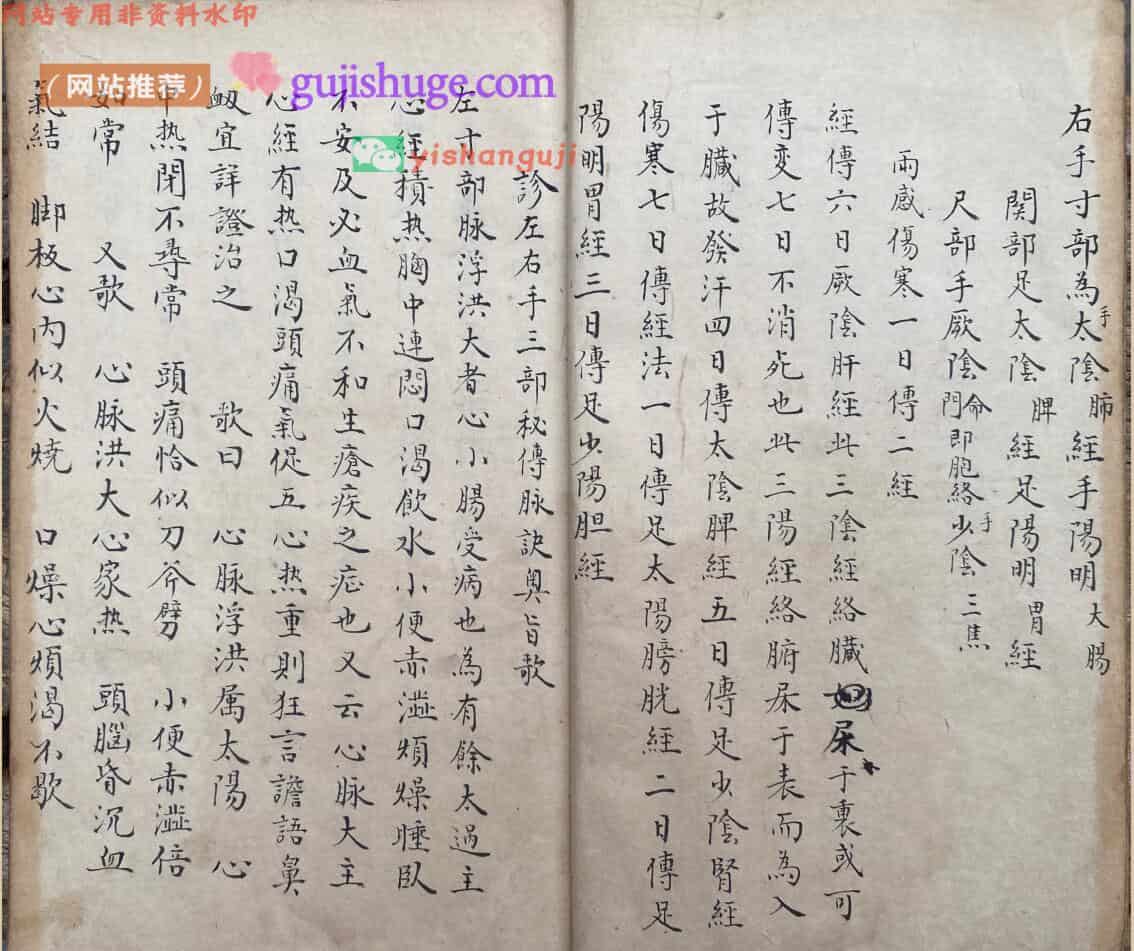 网站专用非资料水印
（网站推荐）
gujishuge.com
yishanguji
右手寸部為手太陰肺經手陽明大腸
関部足太陰脾經足陽明胃經
尺部手厥陰命門即胞絡手少陰三焦
兩感傷寒一日傳二經
經傳六日厥陰肝經此三陰經絡臟屎于裏或可
傳変七日不消死也此三陽經絡腑屎于表而為入
于臟故發汗四日傳太陰脾經五日傳足少陰腎經
傷寒七日傳經法一日傳足太陽膀胱經二日傳足
陽明胃經三日傳足少陽胆經
診左右手三部秘傳脉訣奥旨歌
左寸部脉浮洪大者心小腸受病也為有餘太過主
心經積热胸中連悶口渴飲水小便赤澁煩燥睡臥
不安及必血氣不和生瘡疾之症也又云心脉大主
心經有热口渴頭痛氣促五心热重則狂言譫語鼻
衂宜詳證治之 歌曰 心脉浮洪属太陽 心
中热閉不尋常 頭痛恰似刀斧劈 小便赤澁倍
如常 又歌 心脉洪大心家热 頭腦昏沉血
氣結 脚板心内似火燒 口燥心煩渴不歇